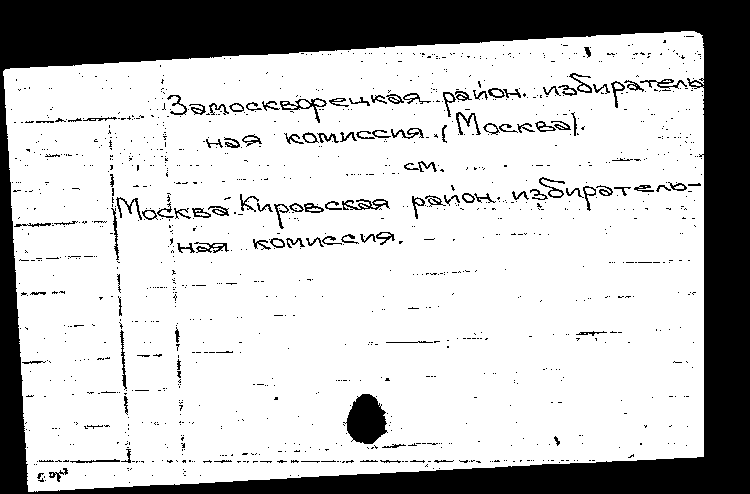 Замоскворецкая район. избиратель-
ная комиссия. (Москва).
см.
Москва. Кировская район. избиратель-
ная комиссия.